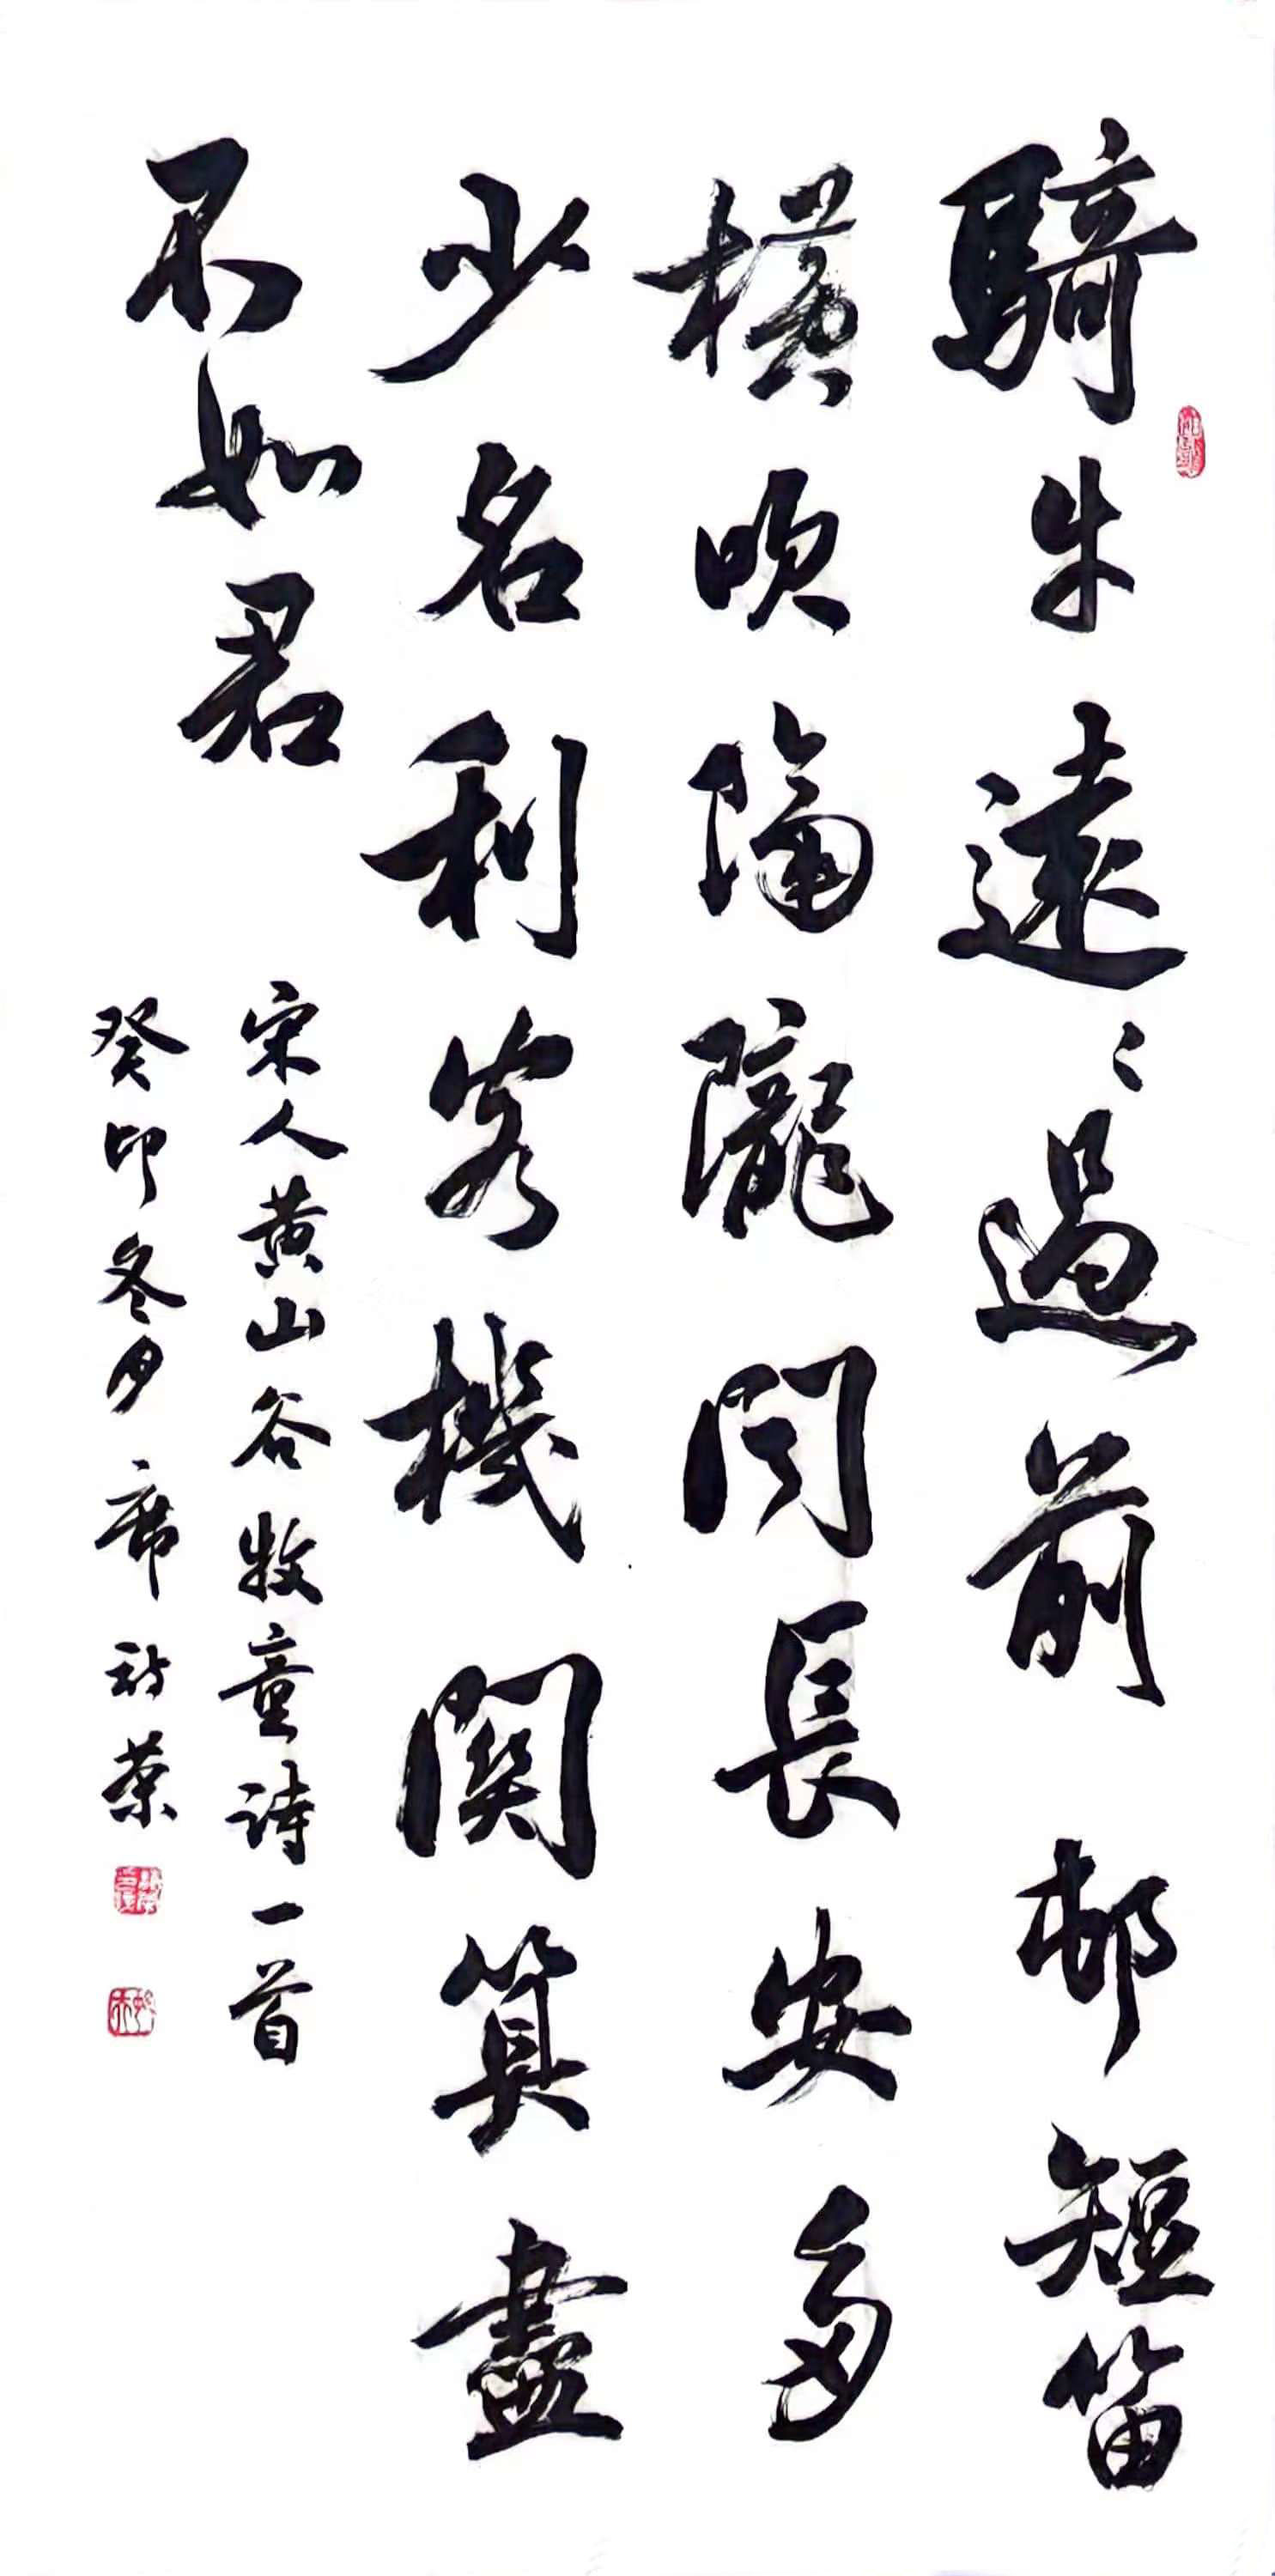 騎牛遠〻過前邨短笛
橫吹隔隴聞長安多
少名利客機關算盡
不如君
宋人黄山谷牧童詩一首
癸卯冬月席榮